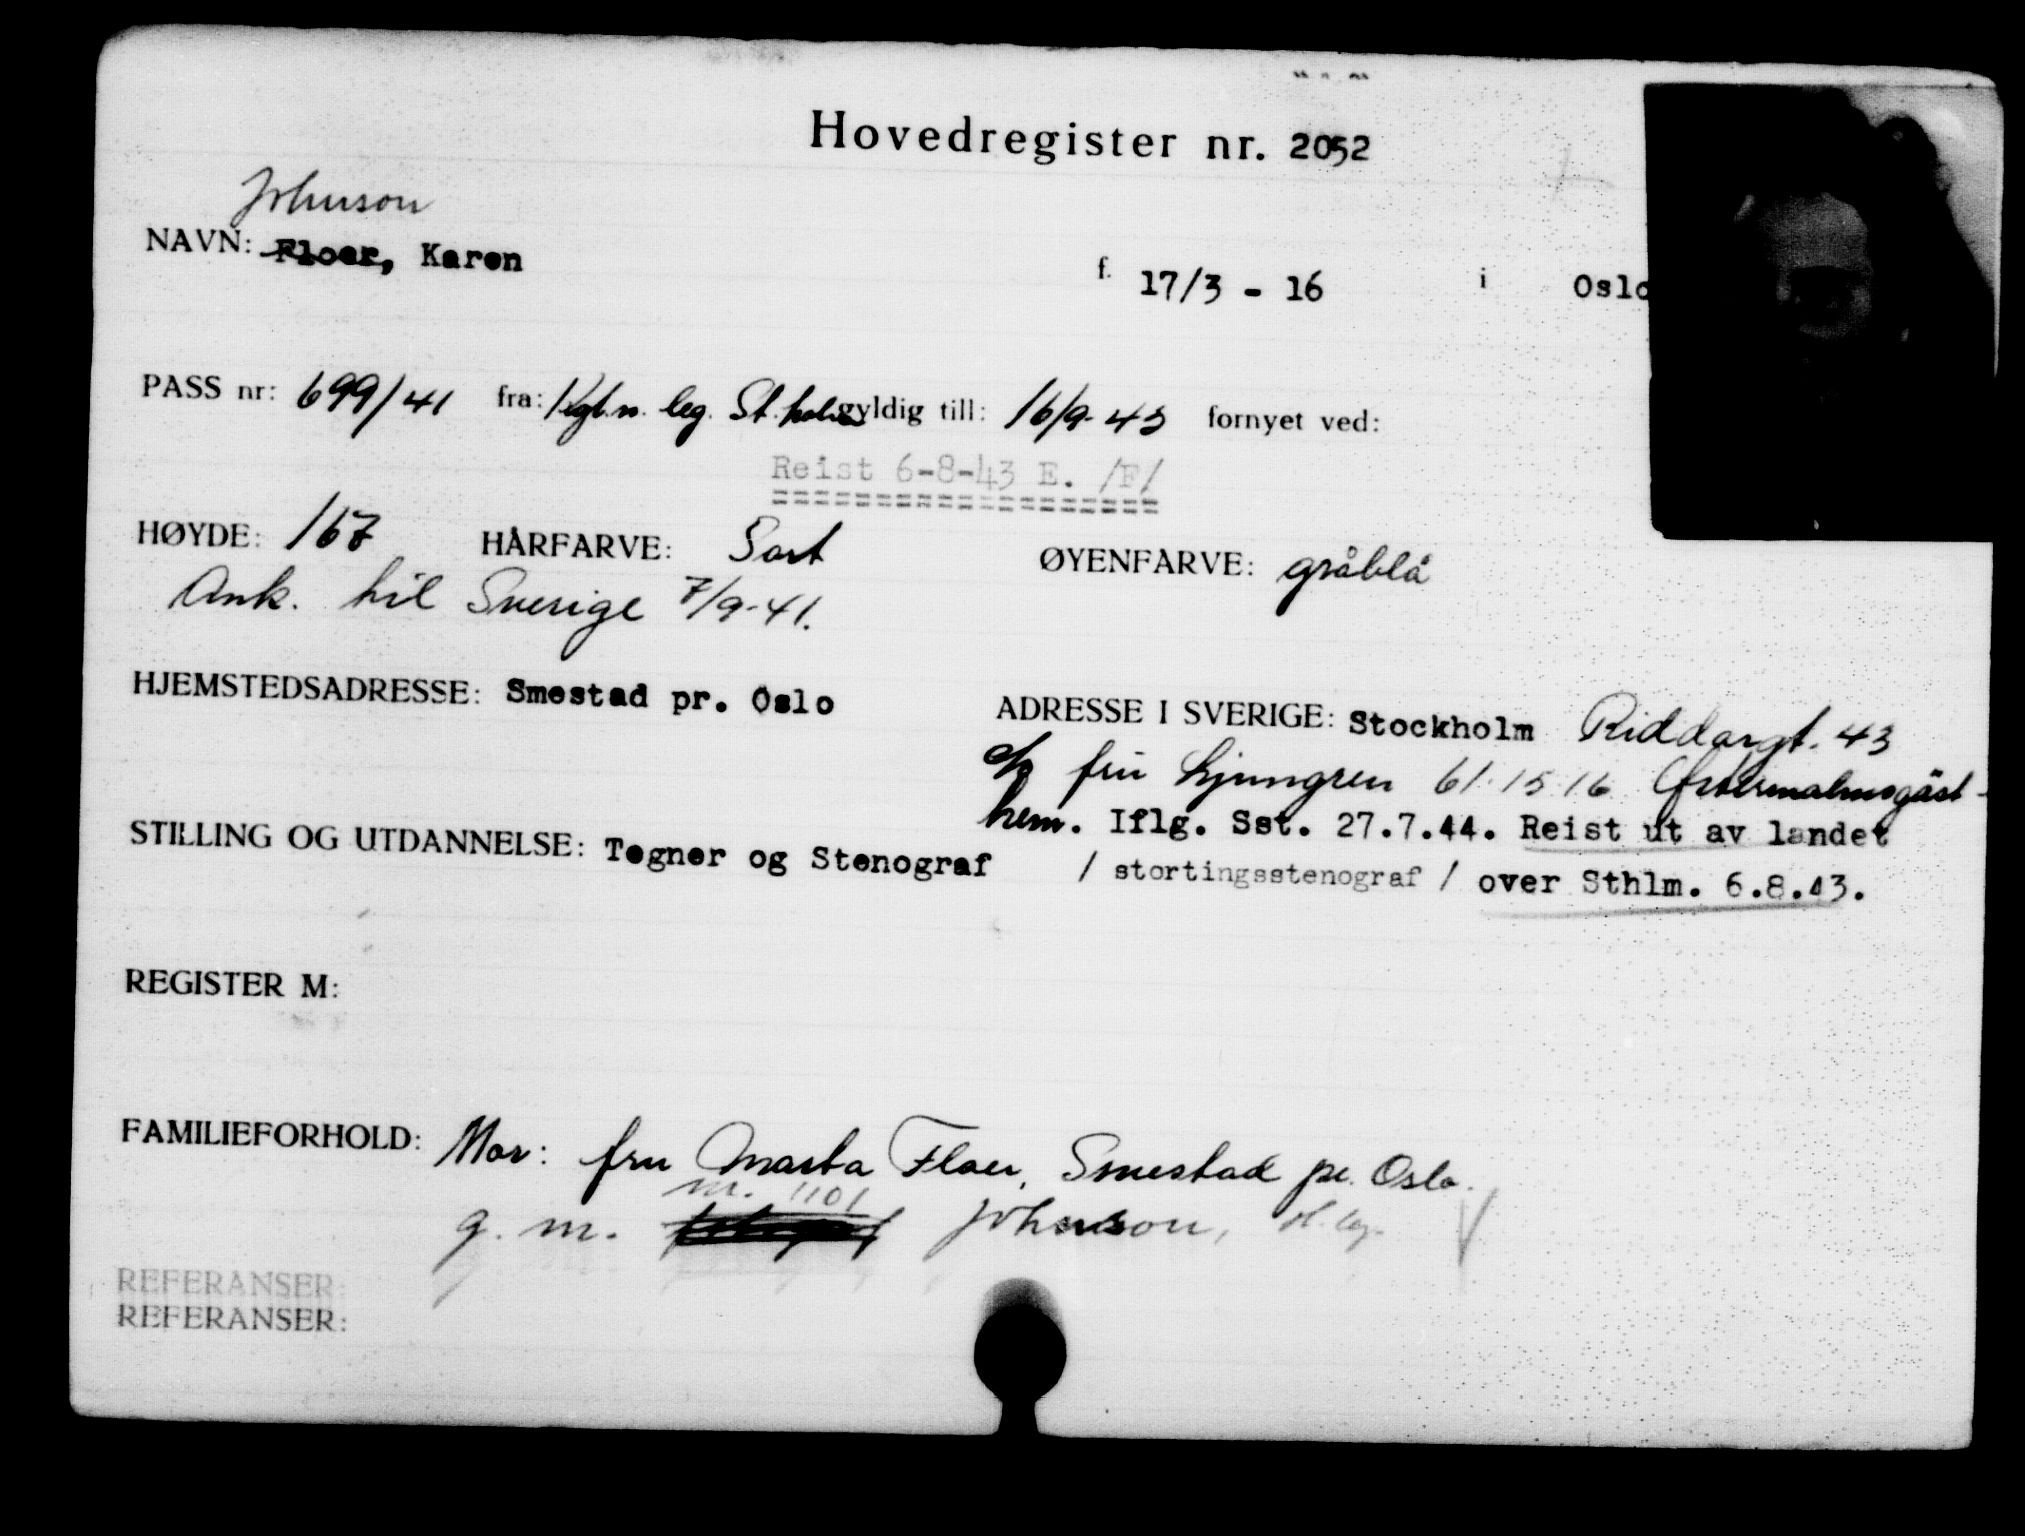 Hovedregister nr. 2052
Johnson
NAVN: Floer, Karen f. 17/3 - 16 i Oslo
PASS nr: 699/41 fra: Kgl. n. leg. St.holm gyldig till: 16/9-43 fornyet ved:
Reist 6-8-43 E. /F/
HØYDE: 167 HÅRFARVE: Sort ØYENFARVE: gråblå
Ank. til Sverige 7/9-41.
HJEMSTEDSADRESSE: Smestad pr. Oslo ADRESSE I SVERIGE: Stockholm Riddargt. 43
c/o fru Ljungren 61 15 16 Østermalmsgäst-
hem. Iflg. Sst. 27.7.44. Reist ut av landet
STILLING OG UTDANNELSE: Tegner og Stenograf / stortingsstenograf / over Sthlm. 6.8.43.
REGISTER M:
FAMILIEFORHOLD: Mor: fru Marta Floer, Smestad pr. Oslo.
nr. 1101
g. m. Johnson,
REFERANSER:
REFERANSER: